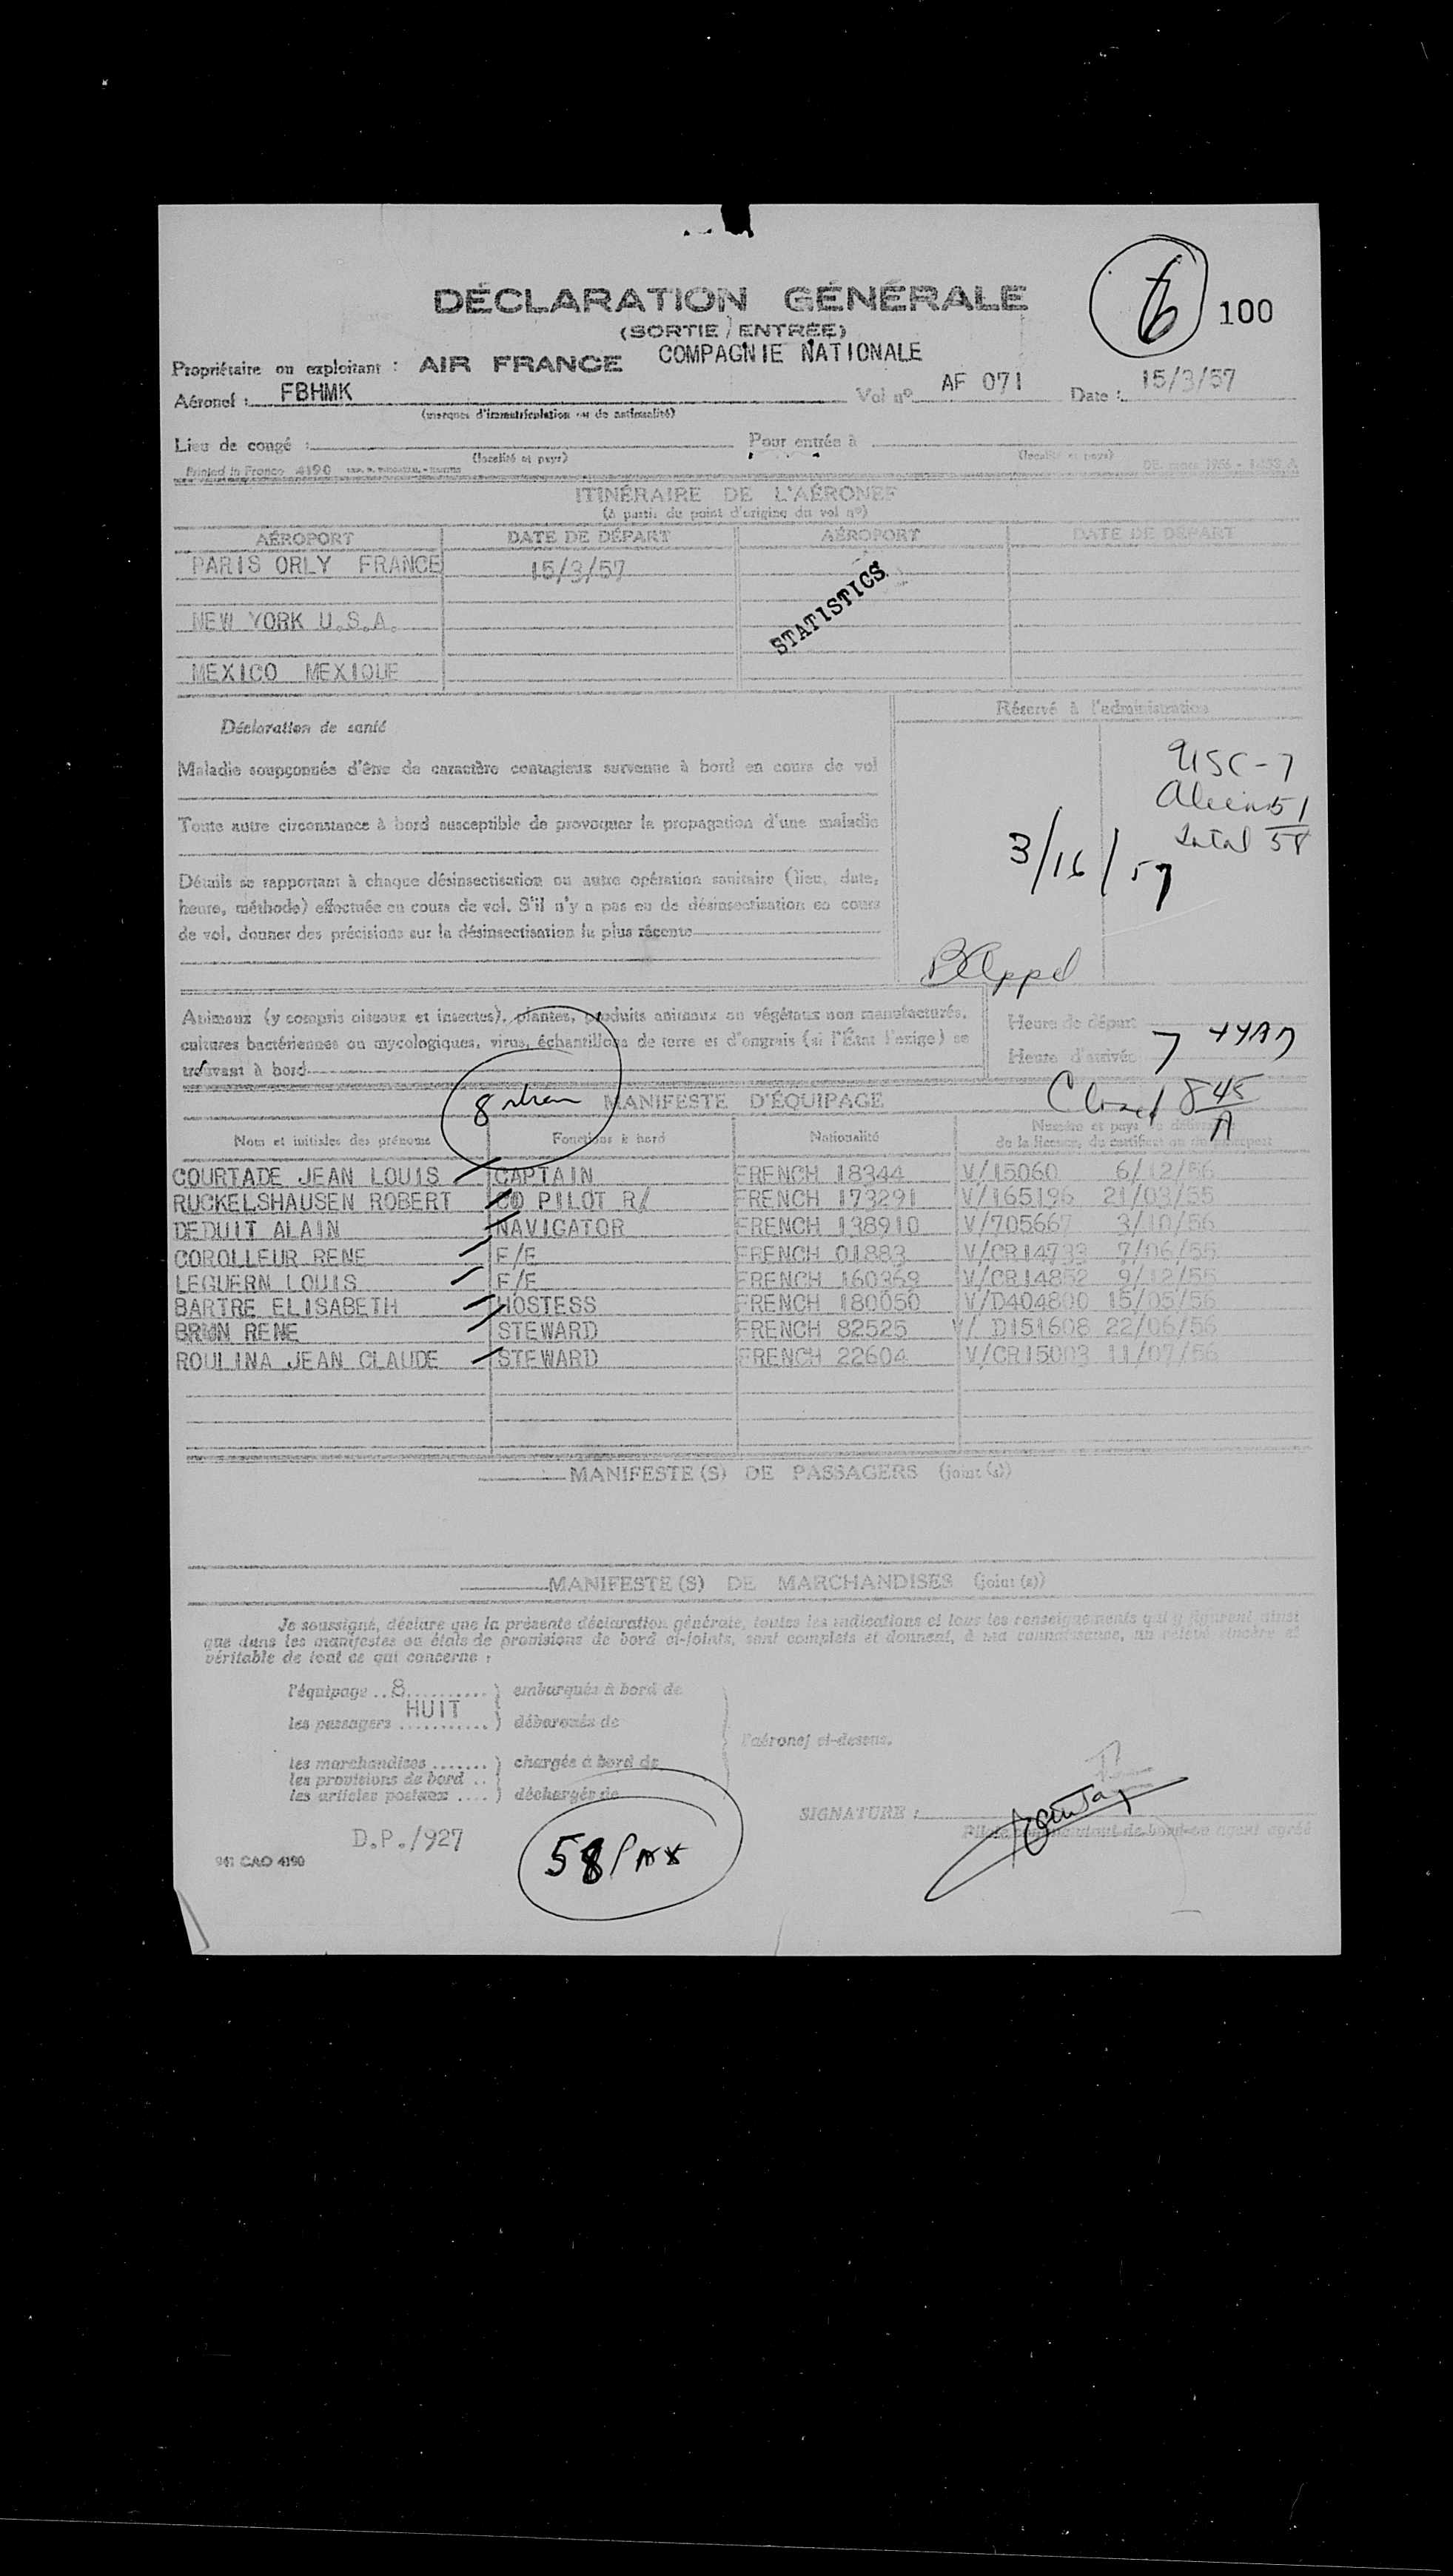 DÉCLARATION GÉNÉRALE
(SORTIE / ENTRÉE)
6
100
COMPAGNIE NATIONALE
Propriétaire ou exploitant : AIR FRANCE
Aéronef : FBHMK Vol nº AF 071 Date : 15/3/57
(marques d'immatriculation ou de nationalité)
Lieu de congé : Pour entrée à
(localité et pays) (localité et pays)
Printed in France 4190
ITINÉRAIRE DE L'AÉRONEF
(à partir du point d'origine du vol nº)
AÉROPORT DATE DE DÉPART AÉROPORT DATE DE DÉPART
PARIS ORLY FRANCE 15/3/57
STATISTICS
NEW YORK U.S.A.
MEXICO MEXIQUE
Réservé à l'administration
Déclaration de santé
Maladie soupçonnée d'être de caractère contagieux survenue à bord en cours de vol
USC - 7
Aliens 51
Total 58
Toute autre circonstance à bord susceptible de provoquer la propagation d'une maladie
3/16/57
Détails se rapportant à chaque désinsectisation ou autre opération sanitaire (lieu, date,
heure, méthode) effectuée en cours de vol. S'il n'y a pas eu de désinsectisation en cours
de vol, donner des précisions sur la désinsectisation la plus récente
Animaux (y compris oiseaux et insectes), plantes, produits animaux ou végétaux non manufacturés,
cultures bactériennes ou mycologiques, virus, échantillons de terre et d'engrais (si l'État l'exige) se
trouvant à bord
Heure de départ
Heure d'arrivée 7 44AM
Closed 8 45 A
8
MANIFESTE D'ÉQUIPAGE
Nom et initiales des prénoms Fonctions à bord Nationalité Numéro et pays de délivrance
de la licence, du certificat ou du passeport
COURTADE JEAN LOUIS CAPTAIN FRENCH 18344 V/15060 6/12/56
RUCKELSHAUSEN ROBERT CO PILOT R/ FRENCH 173291 V/165196 21/03/55
DEDUIT ALAIN NAVIGATOR FRENCH 138910 V/705667 3/10/56
COROLLEUR RENE F/E FRENCH 01883 V/CR14733 7/06/55
LEGUERN LOUIS F/E FRENCH 160369 V/CR14852 9/12/55
BARTRE ELISABETH HOSTESS FRENCH 180050 V/D404800 15/05/56
BRUN RENE STEWARD FRENCH 82525 V/ D151608 22/06/56
ROULINA JEAN CLAUDE STEWARD FRENCH 22604 V/CR15003 11/07/56
MANIFESTE(S) DE PASSAGERS (joint(s))
MANIFESTE(S) DE MARCHANDISES (joint(s))
Je soussigné, déclare que la présente déclaration générale, toutes les indications et tous les renseignements qui y figurent ainsi
que dans les manifestes ou états de provisions de bord ci-joints, sont complets et donnent, à ma connaissance, un relevé sincère et
véritable de tout ce qui concerne :
l'équipage .. 8 .......... ) embarqués à bord de
HUIT
les passagers ............ ) débarqués de
l'aéronef ci-dessus.
les marchandises ....... ) chargés à bord de
les provisions de bord ..
les articles postaux .... ) déchargés de
SIGNATURE :
Pilote commandant de bord ou agent agréé
D.P./927
58 Pax
941 CAO 4190